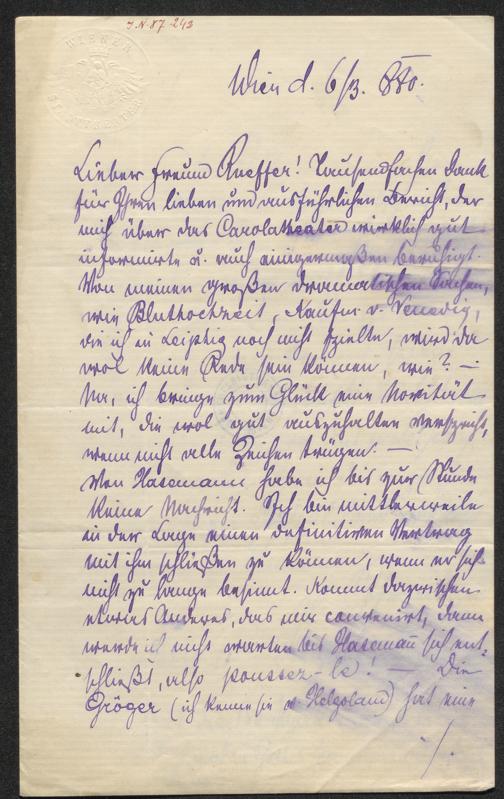 J.N. 87.243
WIENER
Wien d. 6/3. 880.
Lieber Freund Kneffer! Tausendfachen Dank
für Ihren lieben und ausführlichen Bericht, der
mich über das Carolatheater wirklich gut
informirte u. auch einigermaßen beruhigt.
Von meinen großen dramatischen Sachen,
wie Bluthochzeit, Kaufm. v. Venedig,
die ich in Leipzig noch nicht spielte, wird da
wol keine Rede sein können, wie? –
Na, ich bringe zum Glück eine Novität
mit, die wol gut auszuhalten verspricht,
wenn nicht alle Zeichen trügen. –
Von Hasemann habe ich bis zur Stunde
keine Nachricht. Ich bin mittlerweile
in der Lage einen definitiven Vertrag
mit ihm schließen zu können, wenn er sich
nicht zu lange besinnt. Kommt dazwischen
etwas Anderes, das mir convenirt, dann
werde ich nicht warten bis Hasemañ sich ent-
schließt, also poussez-le! – Die
Gröger (ich kenne sie v. Helgoland) hat eine
/.